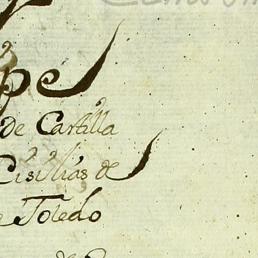 pe
de Castilla
Cisilias de
Toledo